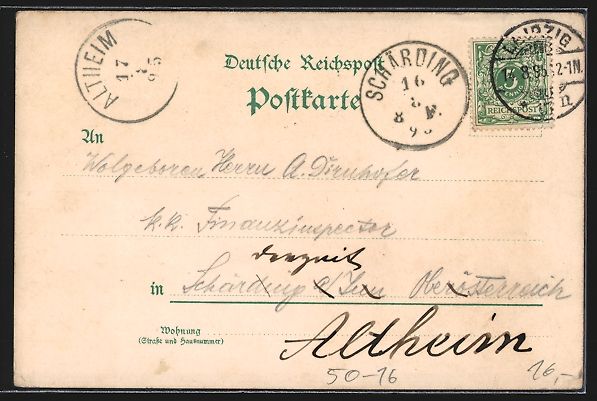 ALTHEIM
17
8
95
Deutsche Reichspost
Postkarte
SCHÄRDING
16
8
8 V.
95
LEIPZIG
14.8.95. 12-1N.
5
REICHSPOST
An
Wolgeboren Herrn A. Dirnhofer
k. k. Finanzinspector
derzeit
in Schärding a/Inn Oberösterreich
Wohnung
(Straße und Hausnummer)
Altheim
50-16
16,-